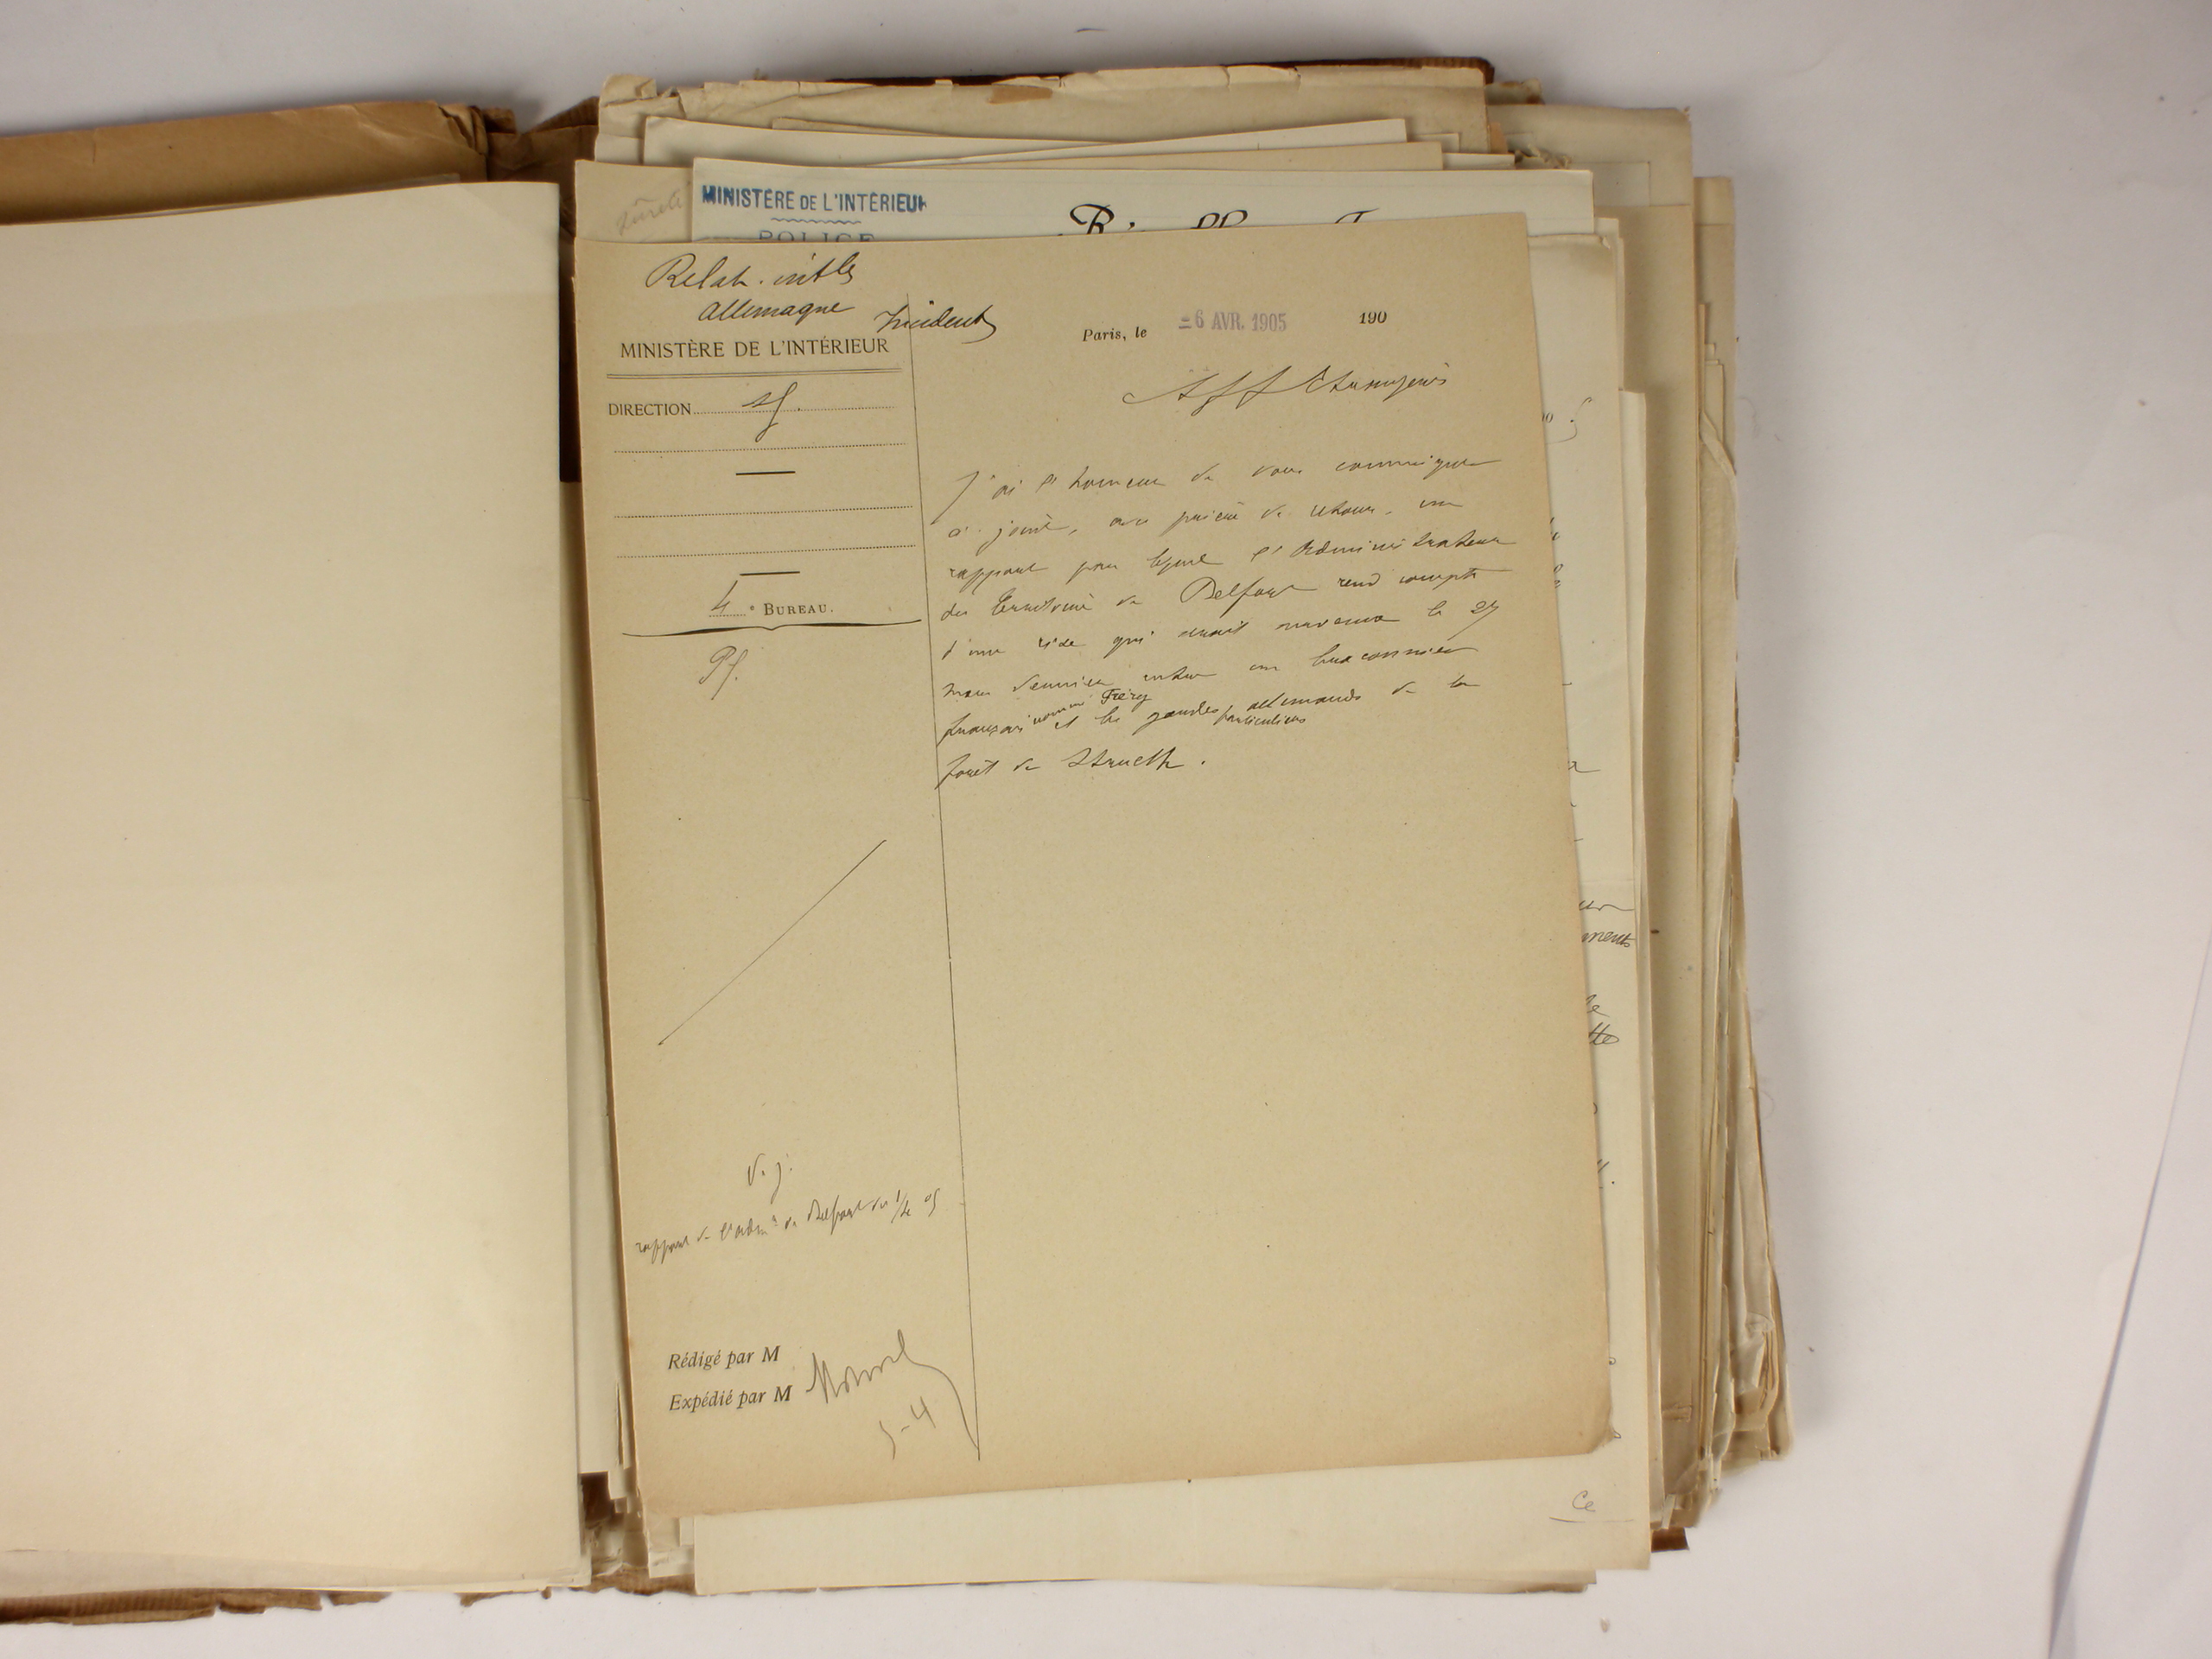 sûreté
MINISTÈRE DE L'INTÉRIEUR
POLICE
Relat. intles
Allemagne
Incidents
MINISTÈRE DE L'INTÉRIEUR
DIRECTION
4e BUREAU.
Paris, le -6 AVR. 1905 190
Aff Etrangères
J'ai l'honneur de vous communiquer
ci-joint, avec prière de retour, un
rapport par lequel l'Administrateur
du Territoire de Belfort rend compte
d'une rixe qui serait survenue le 27
mars dernier entre un braconnier
français nommé Fréry et les gardes particuliers allemands de la
forêt de Strueth.
P. j.
rapport de l'admr de Belfort du 1/4 05
Rédigé par M
Expédié par M
5-4
ments
Ce